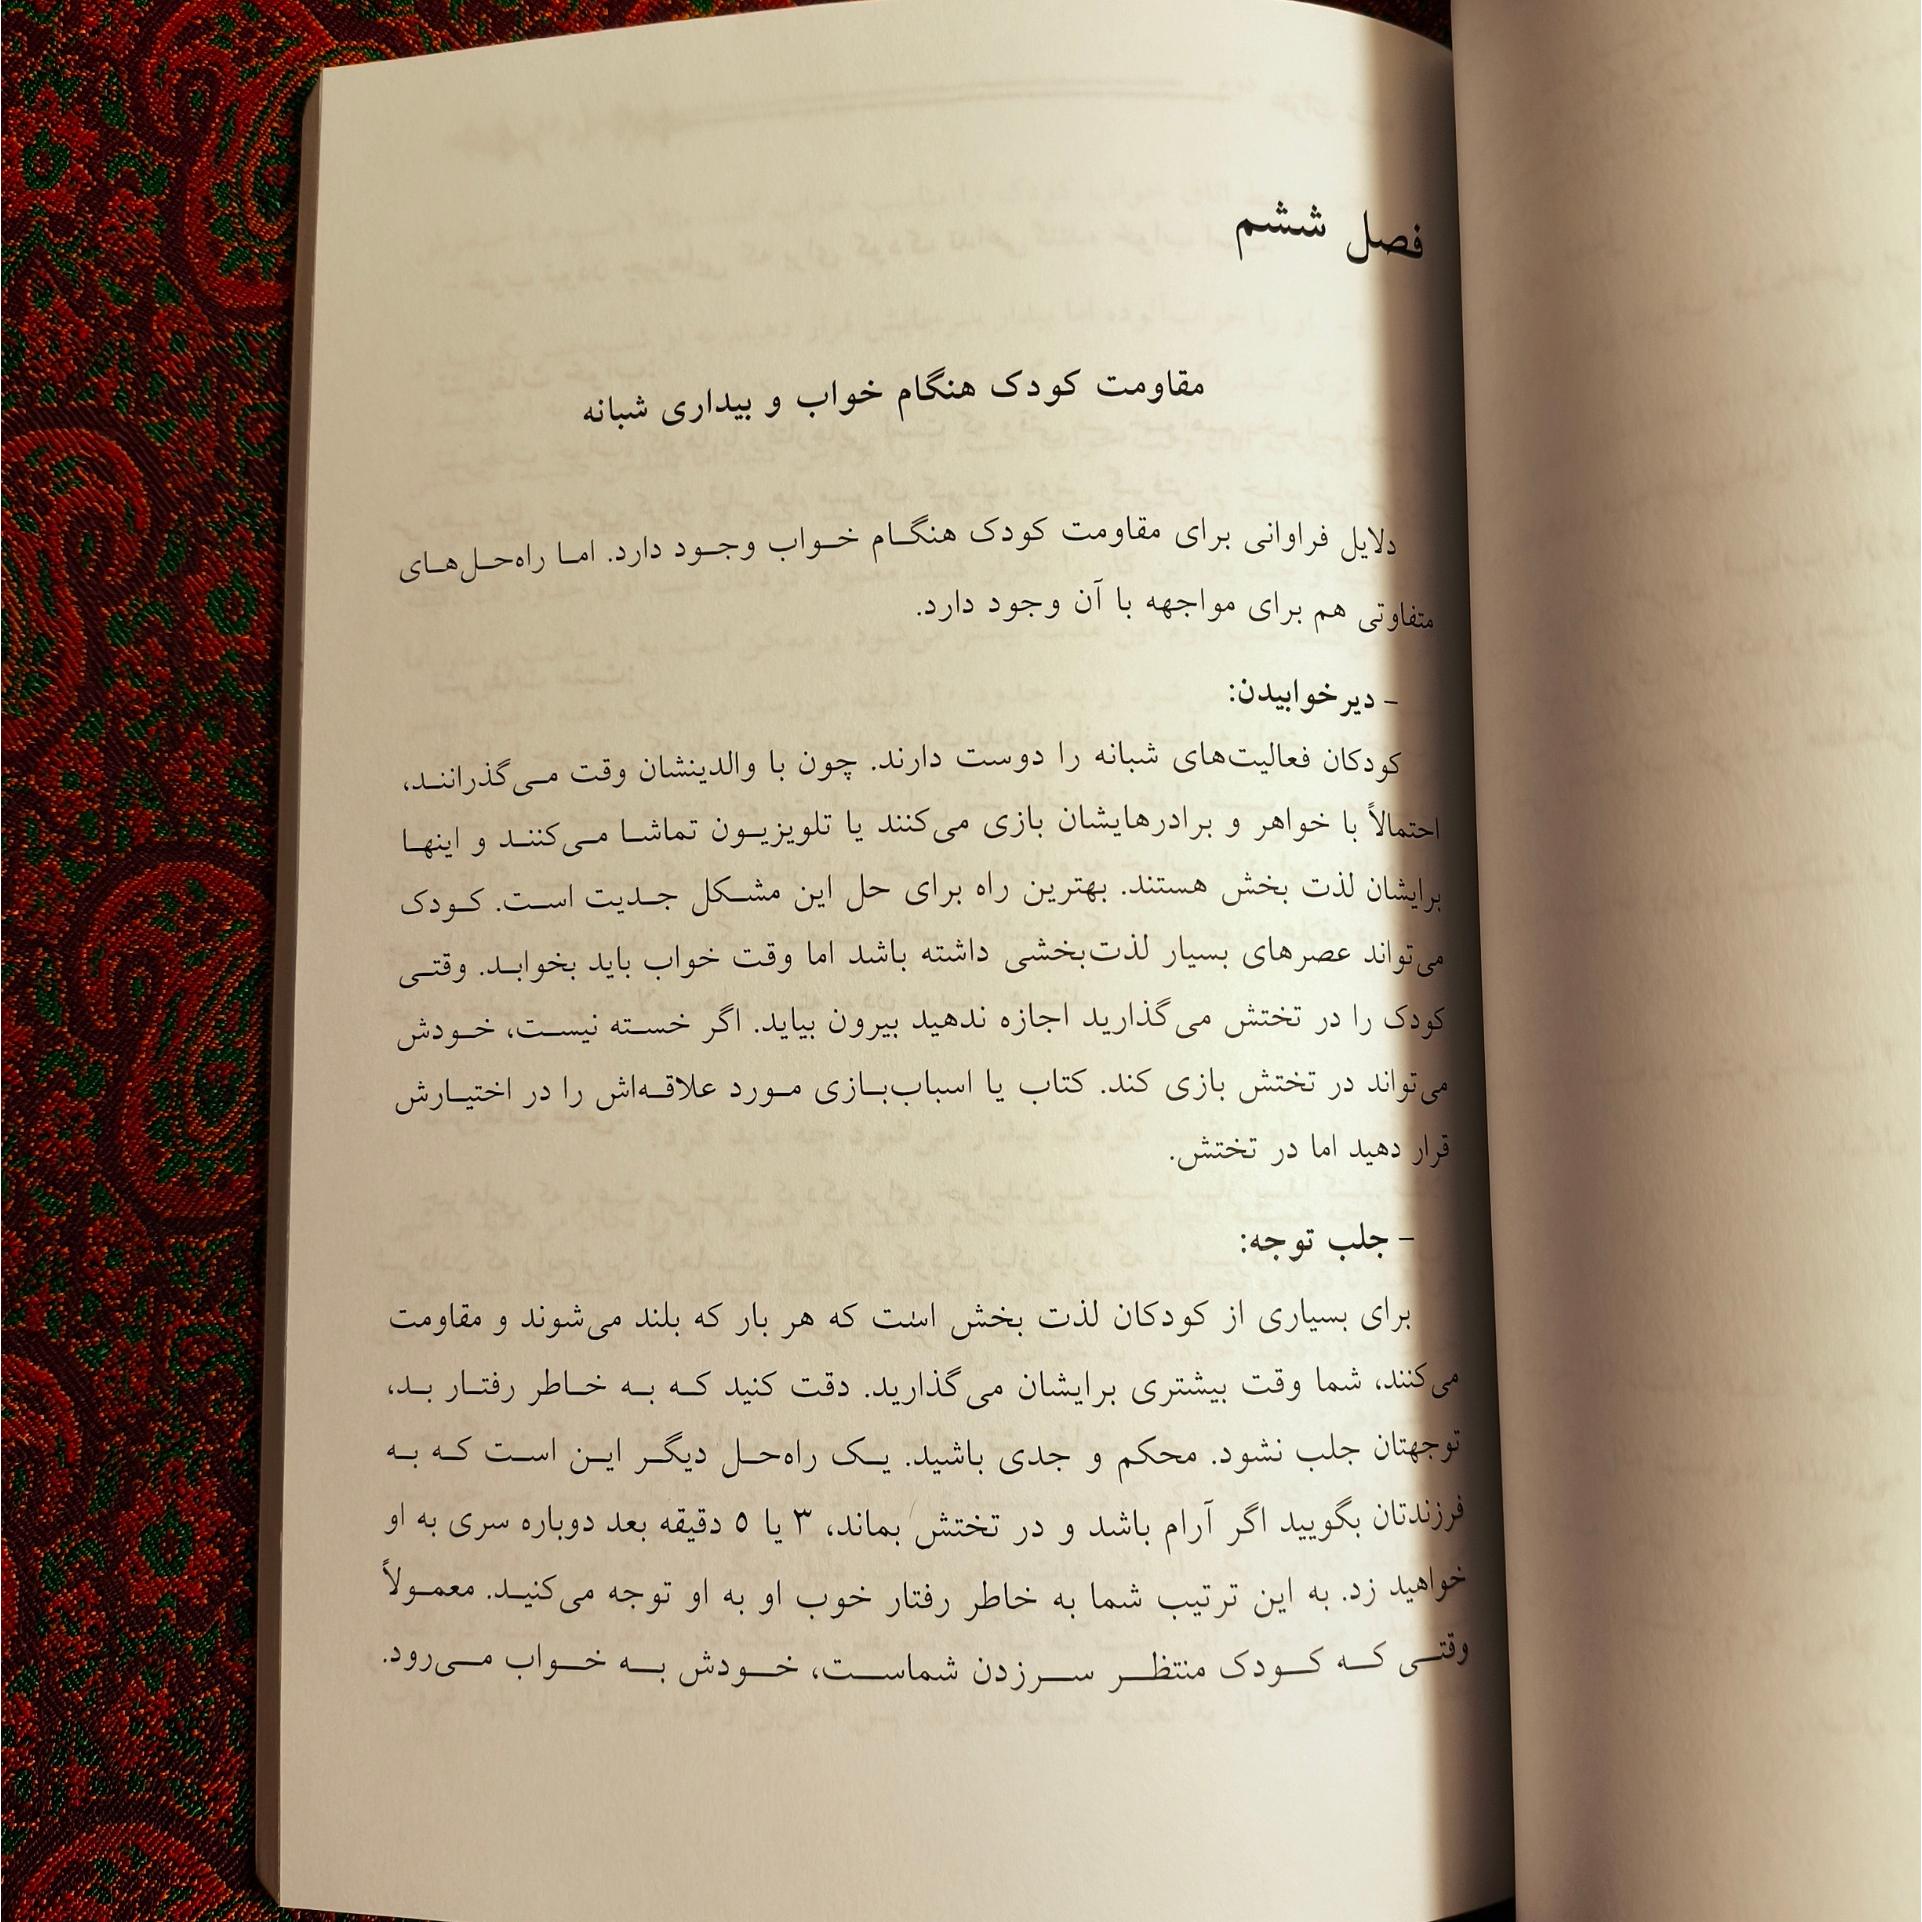 فصل ششم
مقاومت کودک هنگام خواب و بیداری شبانه
دلایل فراوانی برای مقاومت کودک هنگام خواب وجود دارد. اما راه‌حل‌های
متفاوتی هم برای مواجهه با آن وجود دارد.
- دیرخوابیدن:
کودکان فعالیت‌های شبانه را دوست دارند. چون با والدینشان وقت می‌گذرانند،
احتمالاً با خواهر و برادرهایشان بازی می‌کنند یا تلویزیون تماشا می‌کنند و اینها
برایشان لذت بخش هستند. بهترین راه برای حل این مشکل جدیت است. کودک
می‌تواند عصرهای بسیار لذت‌بخشی داشته باشد اما وقت خواب باید بخوابد. وقتی
کودک را در تختش می‌گذارید اجازه ندهید بیرون بیاید. اگر خسته نیست، خودش
می‌تواند در تختش بازی کند. کتاب یا اسباب‌بازی مورد علاقه‌اش را در اختیارش
قرار دهید اما در تختش.
- جلب توجه:
برای بسیاری از کودکان لذت بخش است که هر بار که بلند می‌شوند و مقاومت
می‌کنند، شما وقت بیشتری برایشان می‌گذارید. دقت کنید که به خاطر رفتار بد،
توجهتان جلب نشود. محکم و جدی باشید. یک راه‌حل دیگر این است که به
فرزندتان بگویید اگر آرام باشد و در تختش بماند، ۳ یا ۵ دقیقه بعد دوباره سری به او
خواهید زد. به این ترتیب شما به خاطر رفتار خوب او به او توجه می‌کنید. معمولاً
وقتی که کودک منتظر سرزدن شماست، خودش به خواب می‌رود.